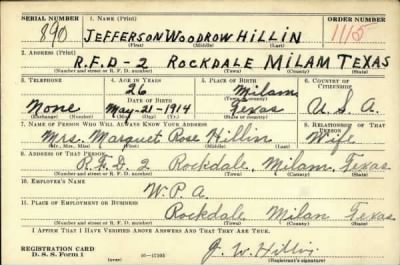 SERIAL NUMBER 1. NAME (Print) ORDER NUMBER
890 JEFFERSON WOODROW HILLIN 1115
(First) (Middle) (Last)
2. ADDRESS (Print)
R.F.D-2 ROCKDALE MILAM TEXAS
(Number and street or R. F. D. number) (Town) (County) (State)
3. TELEPHONE 4. AGE IN YEARS 5. PLACE OF BIRTH 6. COUNTRY OF CITIZENSHIP
26 Milam
DATE OF BIRTH (Town or county)
None May-21-1914 Texas U.S.A.
(Exchange) (Number) (Mo.) (Day) (Yr.) (State or country)
7. NAME OF PERSON WHO WILL ALWAYS KNOW YOUR ADDRESS 8. RELATIONSHIP OF THAT PERSON
Mrs. Marguet Rose Hillin Wife
(Mr., Mrs., Miss) (First) (Middle) (Last)
9. ADDRESS OF THAT PERSON
R.F.D. 2 Rockdale, Milam, Texas
(Number and street or R. F. D. number) (Town) (County) (State)
10. EMPLOYER'S NAME
W.P.A.
11. PLACE OF EMPLOYMENT OR BUSINESS
Rockdale Milan Texas
(Number and street or R. F. D. number) (Town) (County) (State)
I AFFIRM THAT I HAVE VERIFIED ABOVE ANSWERS AND THAT THEY ARE TRUE.
REGISTRATION CARD J. W. Hillin
D. S. S. Form 1 (Registrant's signature)